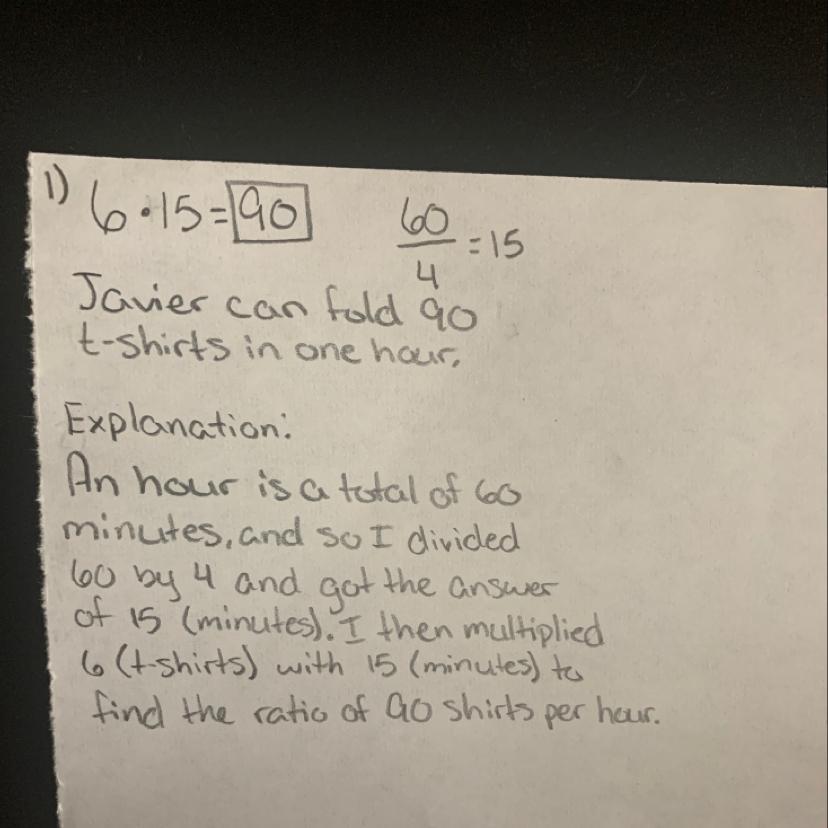 1) 6·15=90
60/4=15
Javier can fold 90
t-shirts in one hour.
Explanation:
An hour is a total of 60
minutes, and so I divided
60 by 4 and got the answer
of 15 (minutes). I then multiplied
6 (t-shirts) with 15 (minutes) to
find the ratio of 90 shirts per hour.